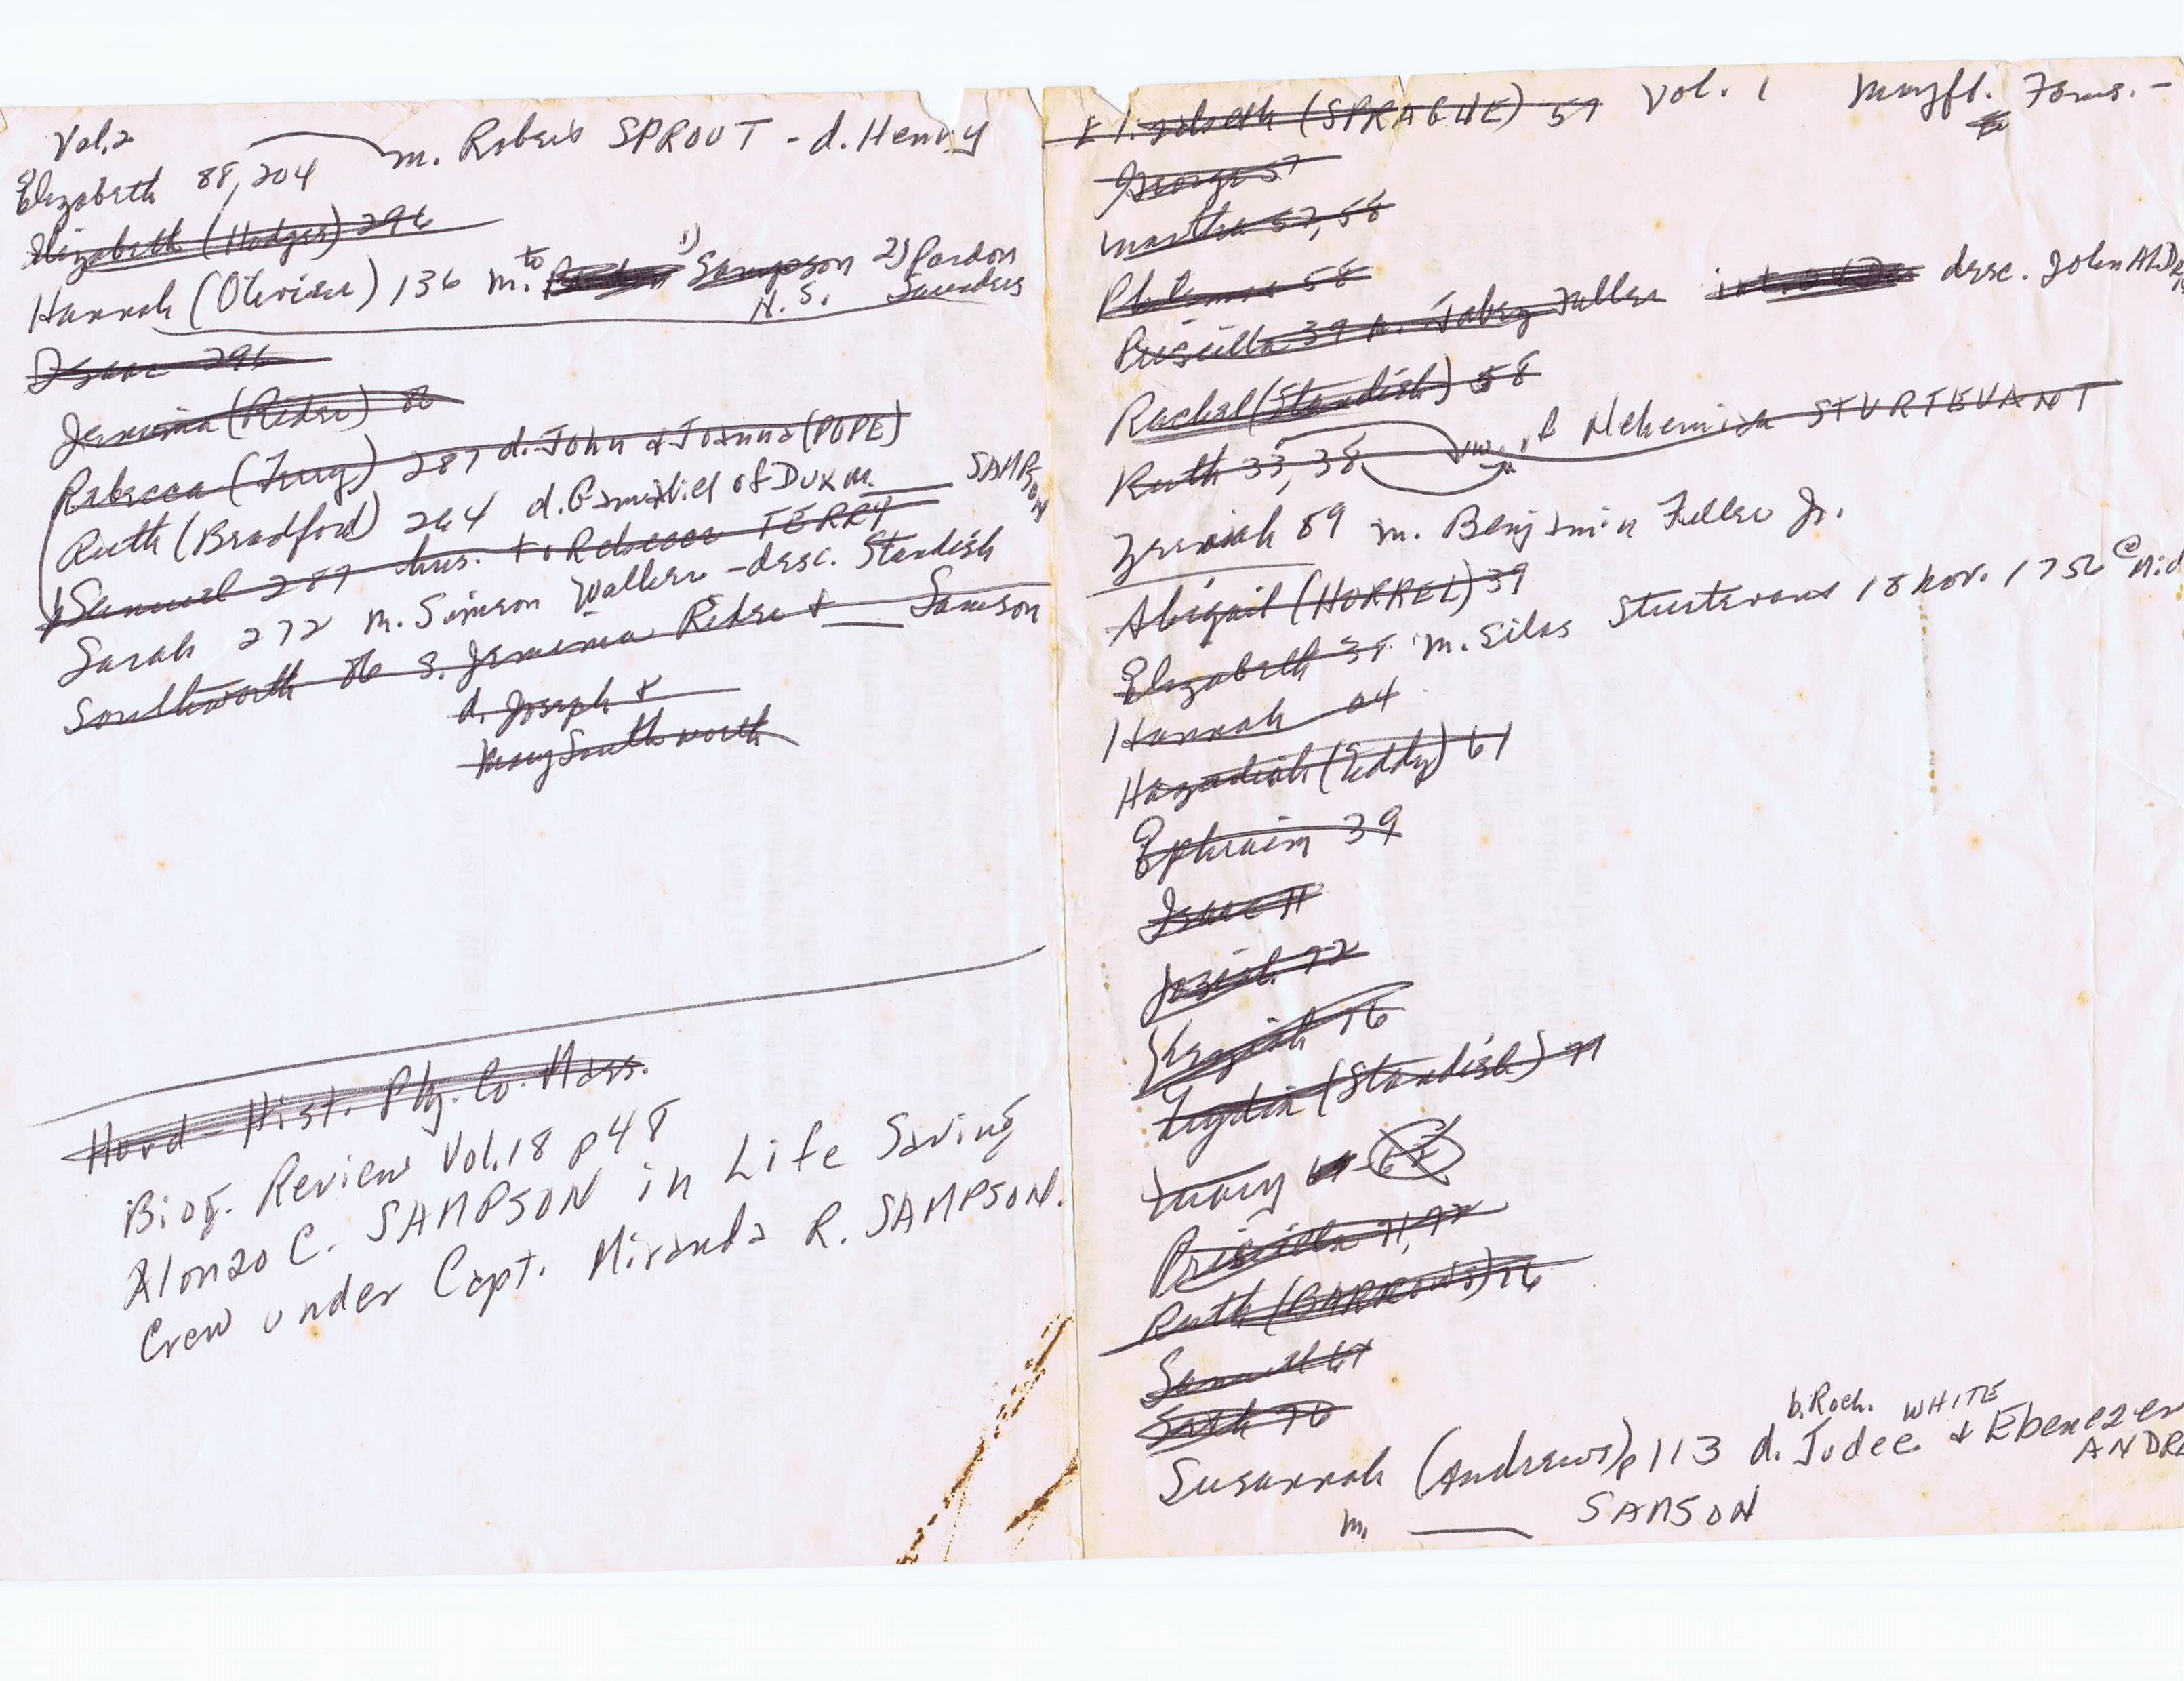 Vol. 2
Elizabeth 88, 204 m. Robert SPROUT - d. Henry
Elizabeth (Hodges) 296
Hannah (Olivier) 136 m. to 1) Sampson 2) Pardon
N.S. Saunders
Isaac 296
Jemima (Rider) 86
Rebecca (Terry) 287 d. John & Joanna (POPE)
Ruth (Bradford) 264 d. Gamaliel of DUX m. ___ SAMPSON
Samuel 287 hus. to Rebecca TERRY
Sarah 272 m. Simeon Waller - desc. Standish
Southworth 86 s. Jemima Rider & ___ Samson
d. Joseph &
Mary Southworth
Hurd - Hist. Ply. Co. Mass.
Biog. Review Vol. 18 p 48
Alonzo C. SAMPSON in Life Saving
Crew under Capt. Miranda R. SAMPSON.
Elizabeth (SPRAGUE) 57 Vol. 1 Mayfl. Fams. -
George 57
Martha 57, 58
58
Priscilla 39 Jabez Fuller desc. John
Rachel (Standish) 58
Ruth 33, 38 w. of Nehemiah STURTEVANT
Zeruiah 89 m. Benjamin Fuller Jr.
Abigail (HORREL) 39
Elizabeth 38 m. Silas Sturtevant 18 Nov. 1752 @
Hannah 24
Hazadiah (Eddy) 61
Ephraim 39
Isaac 71
Josiah 72
76
Lydia (Standish) 71
Mary
Priscilla 71, 72
Ruth (BARROWS) 76
Samuel 61
Sarah 76
b. Roch. WHITE
Susannah (Andrews) p 113 d. Judee & Ebenezer
m. ___ SAMSON